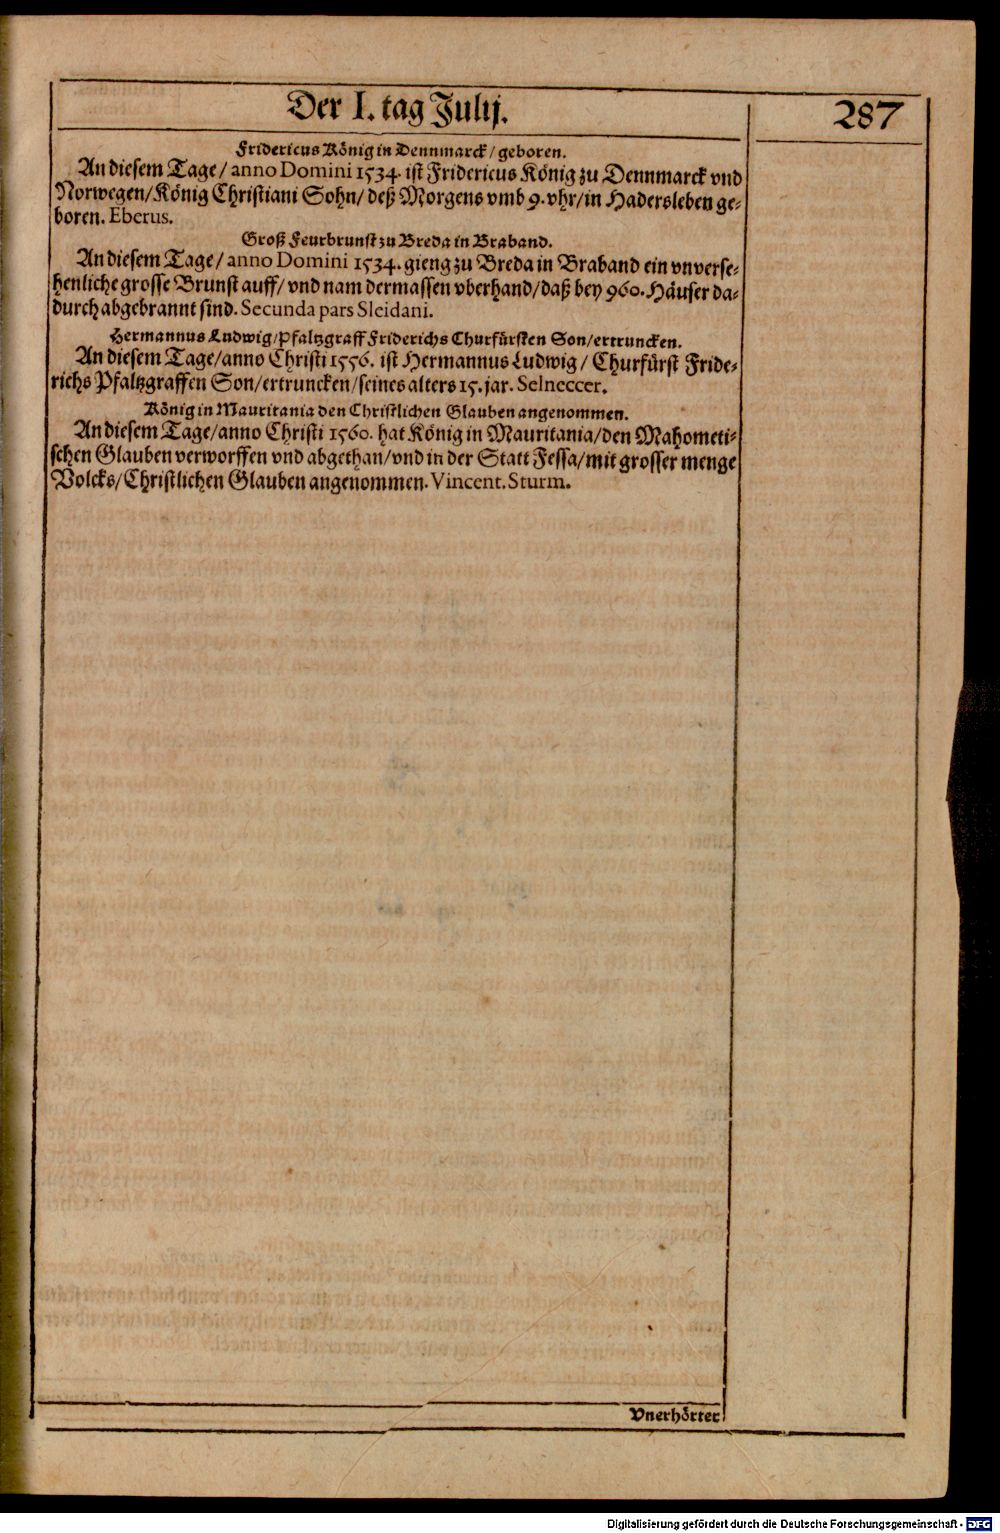 Der I. tag Julij.
287
Fridericus König in Dennmarck / geboren.
An diesem Tage / anno Domini 1534. ist Fridericus König zu Dennmarck vnd
Norwegen / König Christiani Sohn / deß Morgens vmb 9. vhr / in Hadersleben ge-
boren. Eberus.
Groß Feurbrunst zu Breda in Braband.
An diesem Tage / anno Domini 1534. gieng zu Breda in Braband ein vnverse-
henliche grosse Brunst auff / vnd nam dermassen vberhand / daß bey 960. Häuser da-
durch abgebrannt sind. Secunda pars Sleidani.
Hermannus Ludwig / Pfaltzgraff Friderichs Churfürsten Son / ertruncken.
An diesem Tage / anno Christi 1556. ist Hermannus Ludwig / Churfürst Fride-
richs Pfaltzgraffen Son / ertruncken / seines alters 15. jar. Selneccer.
König in Mauritania den Christlichen Glauben angenommen.
An diesem Tage / anno Christi 1560. hat König in Mauritania / den Mahometi-
schen Glauben verworffen vnd abgethan / vnd in der Statt Fessa / mit grosser menge
Volcks / Christlichen Glauben angenommen. Vincent. Sturm.
Vnerhörter
Digitalisierung gefördert durch die Deutsche Forschungsgemeinschaft - DFG